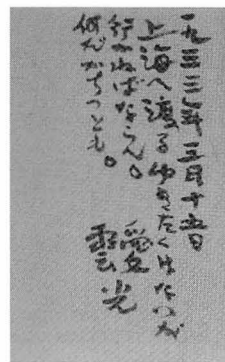 一九三三年三月十五日
上海へ渡るゆきたくはないが
行かねばならん。
何だかちつとも。
靉光